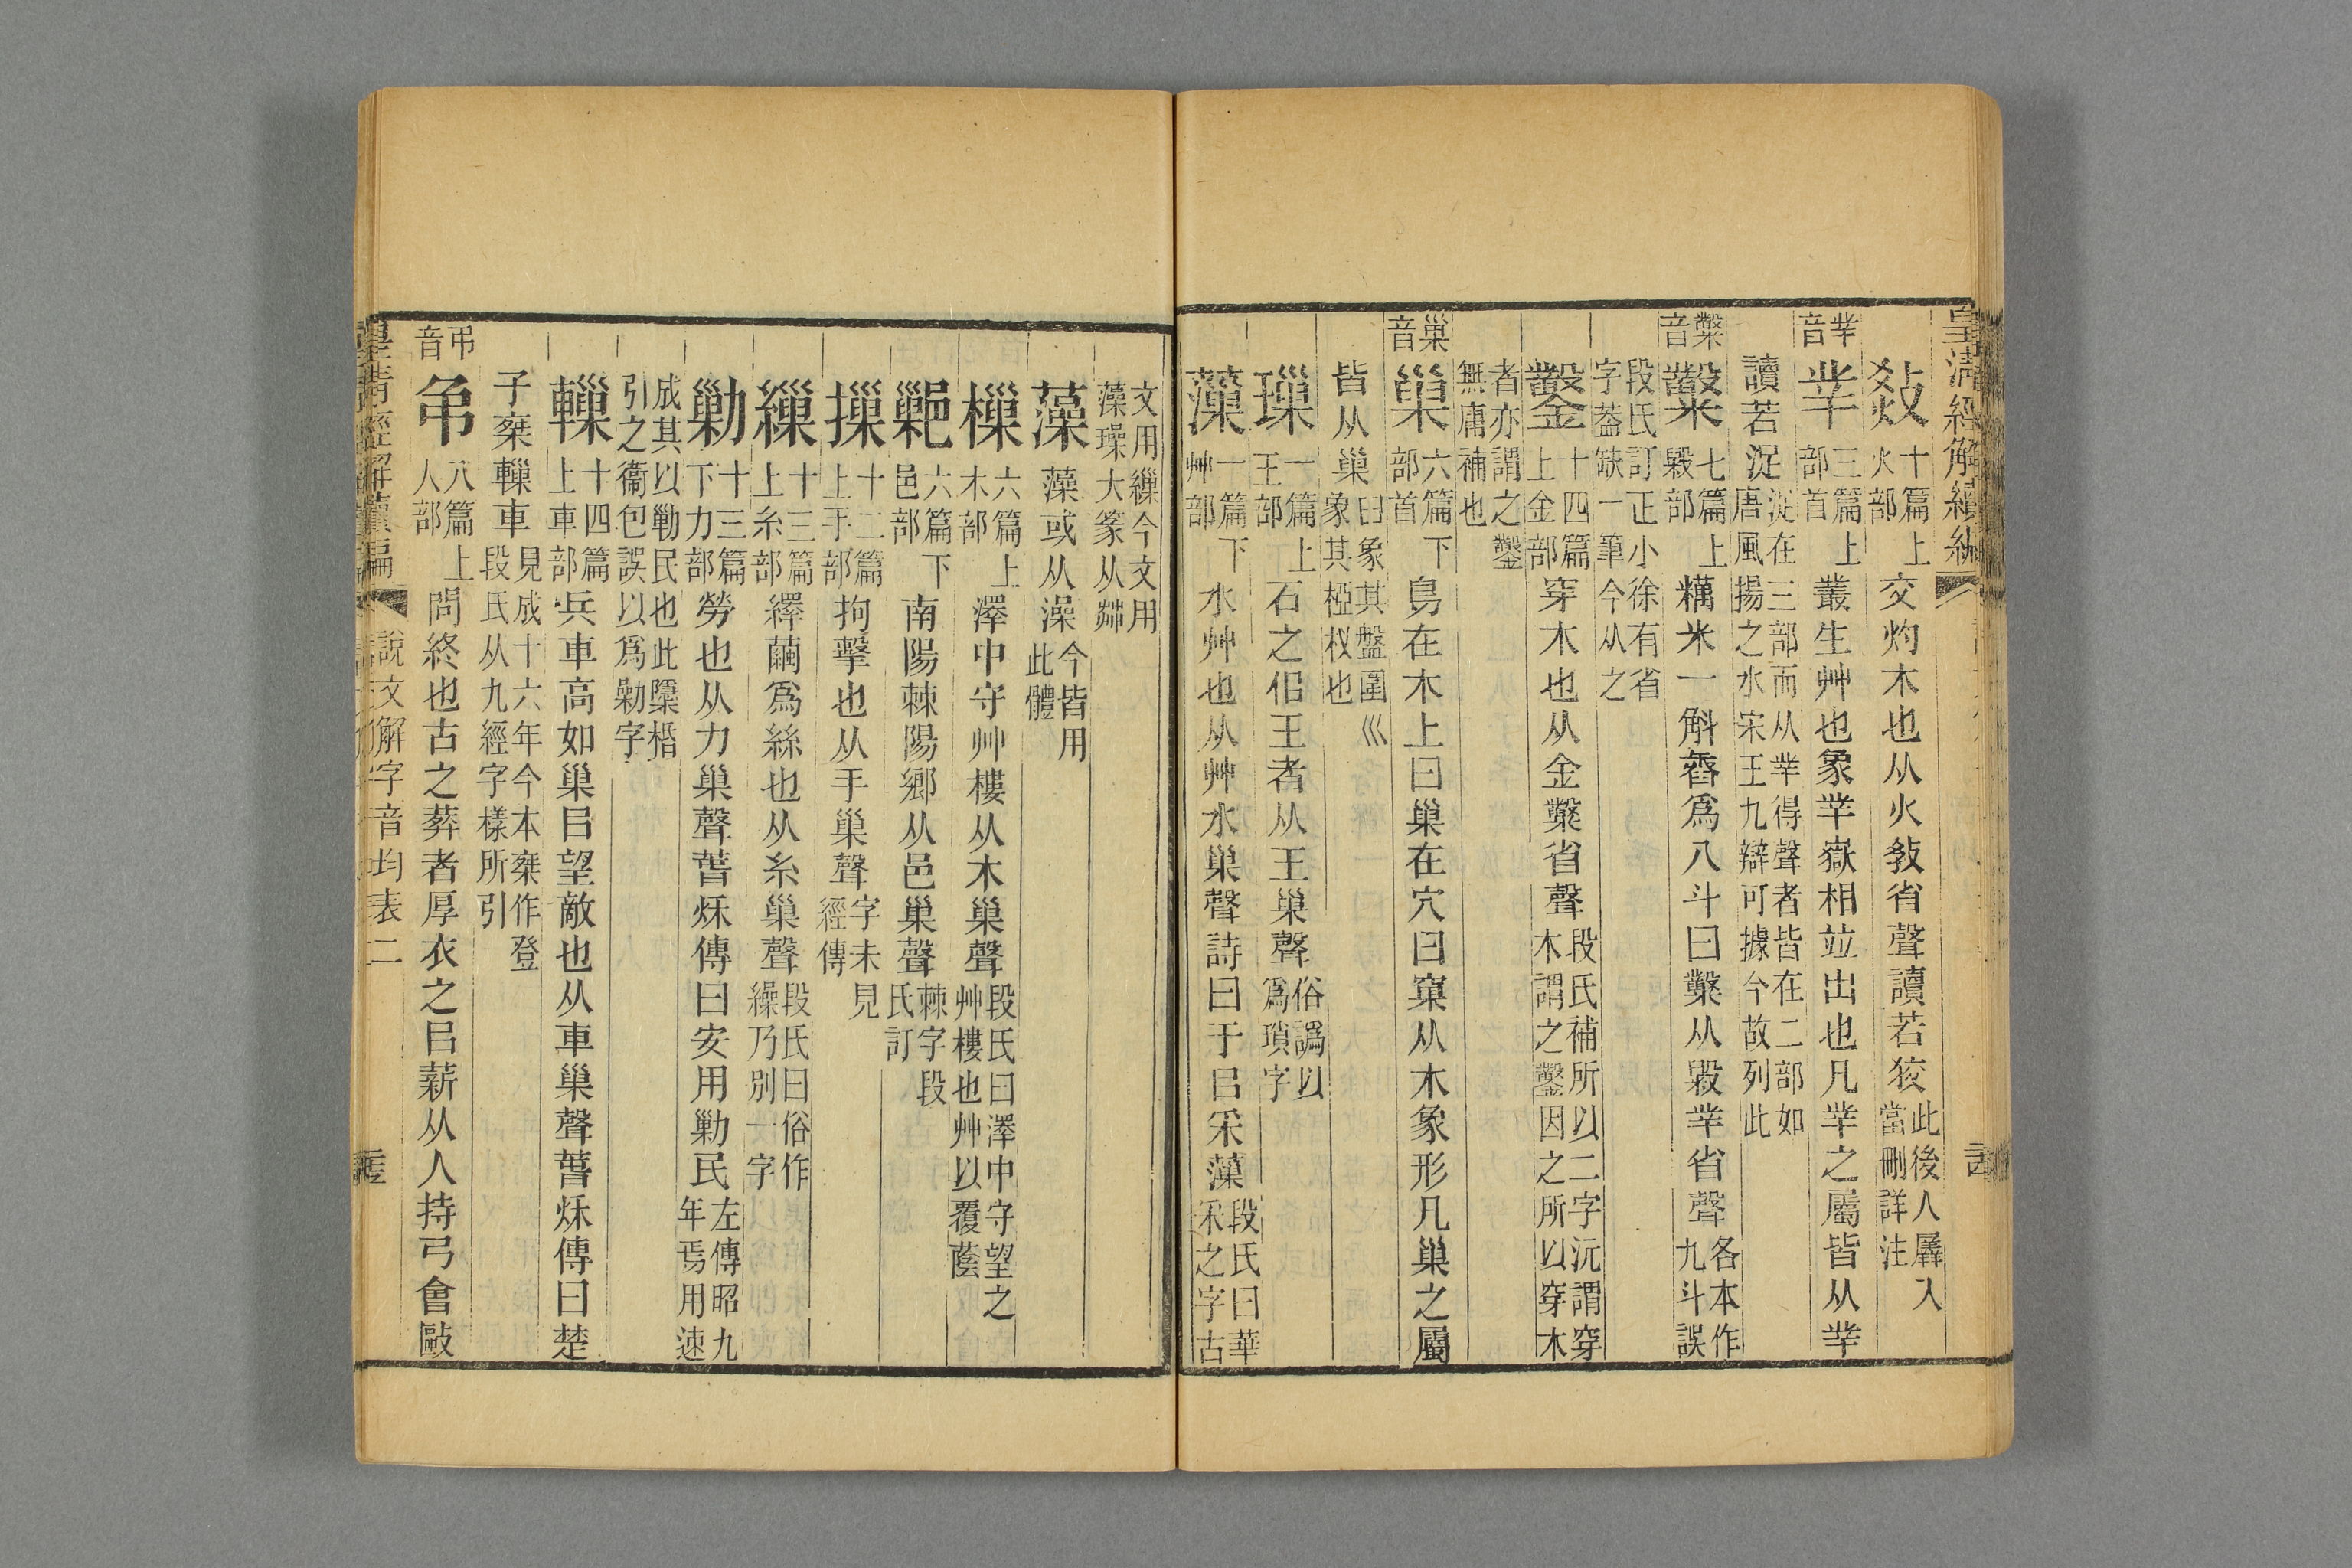 皇清經解續編
𤊽十篇上火部交灼木也从火教省聲讀若狡此後人羼入當刪詳注
丵音丵三篇上部首叢生艸也象丵嶽相竝出也凡丵之屬皆从丵
讀若浞浞在三部而从丵得聲者皆在二部如唐風揚之水宋王九辯可據今故列此
糳音糳七篇上毇部糲米一斛舂爲八斗曰糳从毇丵省聲各本作九斗誤
段氏訂正小徐有省字葢缺一筆今从之
鑿十四篇上金部穿木也从金糳省聲段氏補所以二字沅謂穿木謂之鑿因之所以穿木
者亦謂之鑿無庸補也
巢音巢六篇下部首鳥在木上曰巢在穴曰窠从木象形凡巢之屬
皆从巢𦥑象其盤圍巛象其椏杈也
璅一篇上王部石之佀王者从王巢聲俗譌以爲瑣字
藻一篇下艸部水艸也从艸水巢聲詩曰于㠯采藻段氏曰華采之字古
文用繅今文用藻璪大篆从茻
藻藻或从澡今皆用此體
樔六篇上木部澤中守艸樓从木巢聲段氏曰澤中守望之艸樓也艸以覆蔭
鄛六篇下邑部南陽棘陽鄉从邑巢聲棘字段氏訂
摷十二篇上手部拘擊也从手巢聲字未見經傳
繅十三篇上糸部繹繭爲絲也从糸巢聲段氏曰俗作繰乃別一字
勦十三篇下力部勞也从力巢聲萅秌傳曰安用勦民左傳昭九年焉用速
成其以勦民也此檃桰引之衞包誤以爲剿字
轈十四篇上車部兵車高如巢㠯望敵也从車巢聲萅秌傳曰楚
子椉轈車見成十六年今本椉作登段氏从九經字樣所引
弔音弔八篇上人部問終也古之葬者厚衣之㠯薪从人持弓會敺
皇清經解續編
說文解字音均表二